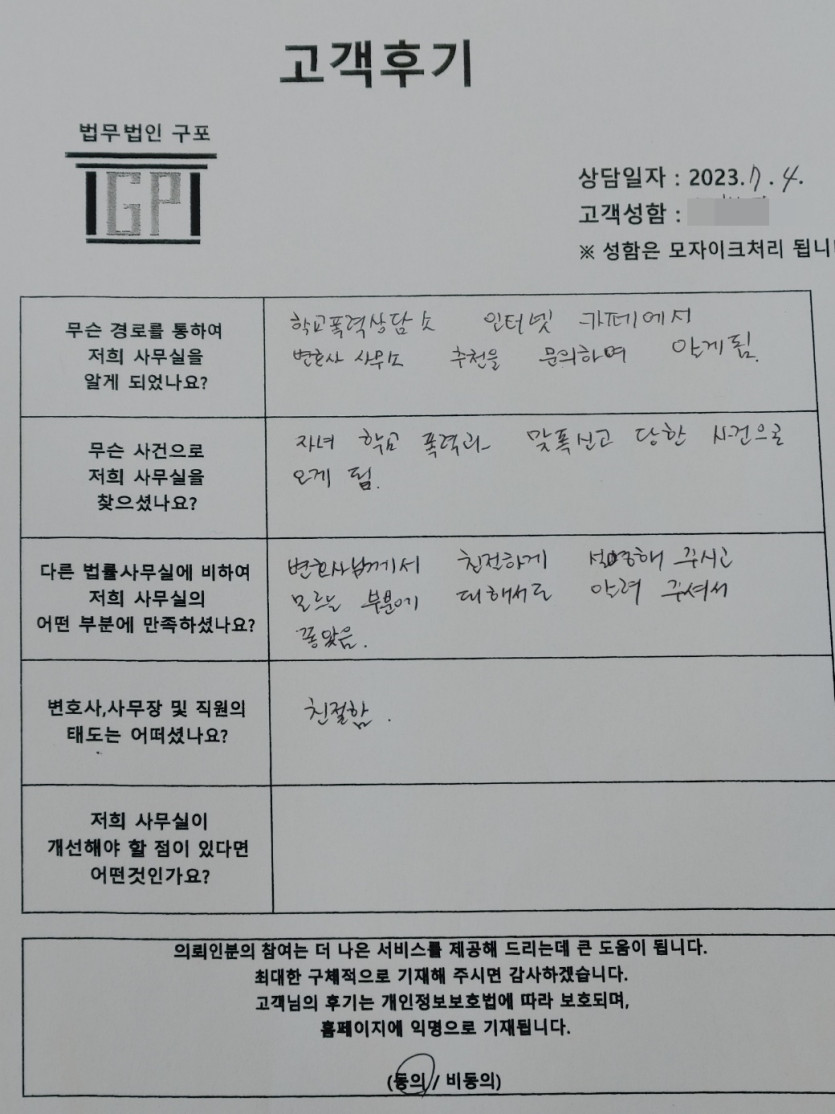 고객후기
법무법인 구포
GP
상담일자 : 2023.7.4.
고객성함 :
※ 성함은 모자이크처리 됩니
무슨 경로를 통하여
저희 사무실을
알게 되었나요?
학교폭력상담소 인터넷 카페에서
변호사 사무소 추천을 문의하며 알게됨.
무슨 사건으로
저희 사무실을
찾으셨나요?
자녀 학교 폭력과 맞폭신고 당한 사건으로
오게 됨.
다른 법률사무실에 비하여
저희 사무실의
어떤 부분에 만족하셨나요?
변호사님께서 친절하게 설명해 주시고
모르는 부분에 대해서도 알려 주셔서
좋았음.
변호사,사무장 및 직원의
태도는 어떠셨나요?
친절함.
저희 사무실이
개선해야 할 점이 있다면
어떤것인가요?
의뢰인분의 참여는 더 나은 서비스를 제공해 드리는데 큰 도움이 됩니다.
최대한 구체적으로 기재해 주시면 감사하겠습니다.
고객님의 후기는 개인정보보호법에 따라 보호되며,
홈페이지에 익명으로 기재됩니다.
(동의 / 비동의)